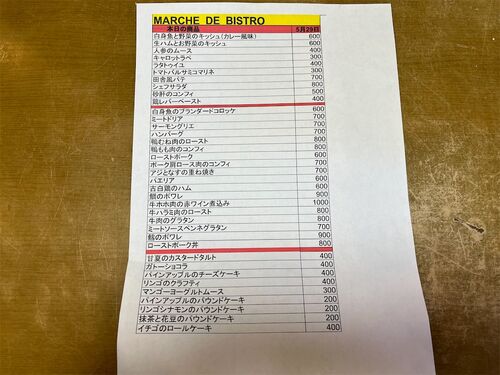 MARCHE DE BISTRO
本日の商品 5月29日
白身魚と野菜のキッシュ(カレー風味) 600
生ハムとお野菜のキッシュ 600
人参のムース 400
キャロットラペ 300
ラタトゥイユ 400
トマトバルサミコマリネ 300
田舎風パテ 700
シェフサラダ 800
砂肝のコンフィ 500
鶏レバーペースト 400
白身魚のブランダードコロッケ 600
ミートドリア 700
サーモングリエ 700
ハンバーグ 700
鴨むね肉のロースト 800
鴨もも肉のコンフィ 800
ローストポーク 600
ポーク肩ロース肉のコンフィ 700
アジとなすの重ね焼き 700
パエリア 600
古白鶏のハム 600
鯛のポワレ 900
牛ホホ肉の赤ワイン煮込み 1000
牛ハラミ肉のロースト 800
牛肉のグラタン 800
ミートソースペンネグラタン 700
のポワレ 900
ローストポーク丼 800
甘夏のカスタードタルト 400
ガトーショコラ 400
パインアップルのチーズケーキ 400
リンゴのクラフティ 400
マンゴーヨーグルトムース 300
パインアップルのパウンドケーキ 200
リンゴシナモンのパウンドケーキ 200
抹茶と花豆のパウンドケーキ 200
イチゴのロールケーキ 400